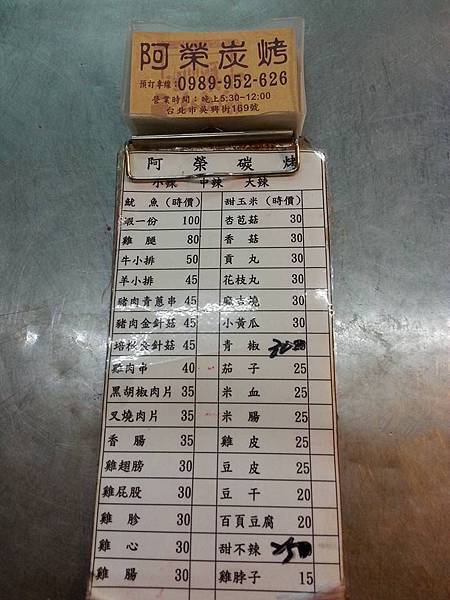 阿榮炭烤
預訂專線:0989-952-626
營業時間:晚上5:30~12:00
台北市吳興街169號
阿 榮 碳 烤
小辣 中辣 大辣
魷 魚(時價) 甜玉米(時價)
蝦一份 100 杏苞菇 30
雞 腿 80 香 菇 30
牛小排 50 貢 丸 30
羊小排 45 花枝丸 30
豬肉青蔥串 45 麻吉燒 30
豬肉金針菇 45 小黃瓜 30
培根金針菇 45 青 椒
雞肉串 40 茄 子 25
黑胡椒肉片 35 米 血 25
叉燒肉片 35 米 腸 25
香 腸 35 雞 皮 25
雞翅膀 30 豆 皮 25
雞屁股 30 豆 干 20
雞 胗 30 百頁豆腐 20
雞 心 30 甜不辣
雞 腸 30 雞脖子 15